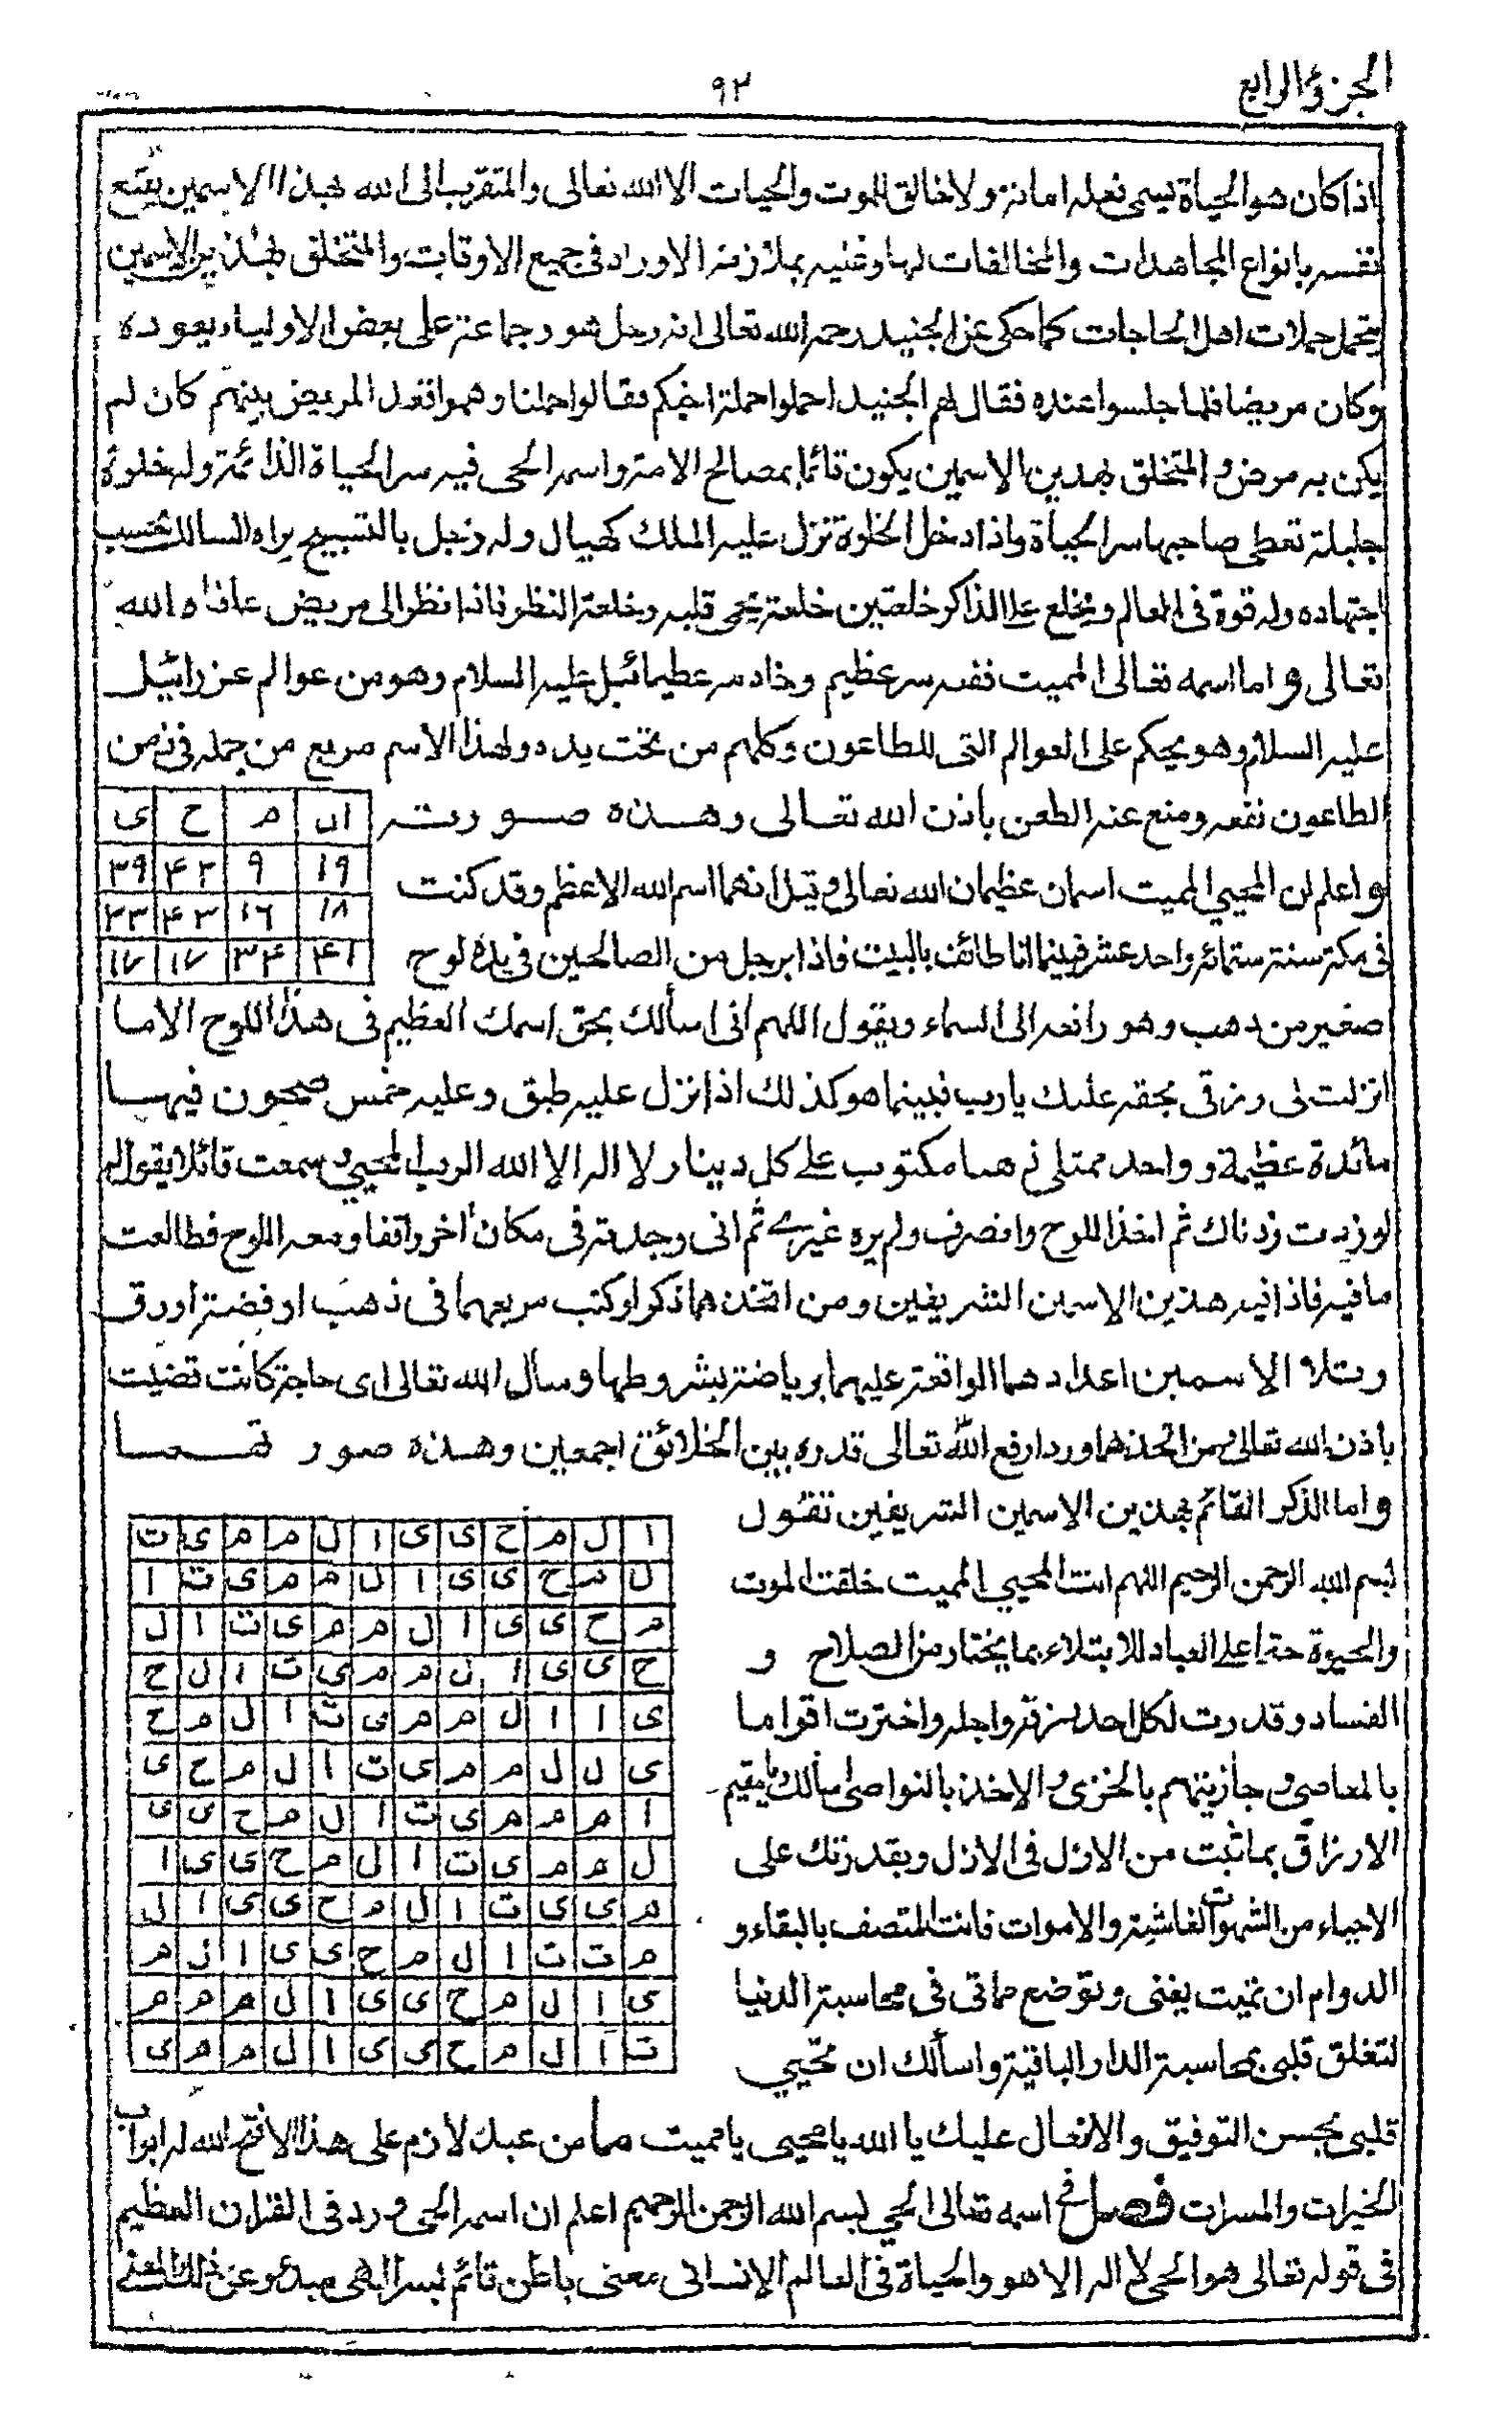 الجزؤ الرابع
۹۲
اذا كان هو الحياة يسمى فعله اماتة ولا خالق للموت والحيات الا الله تعالى والمتقرب الى الله بهذا الاسمين يقمع
نفسه بانواع المجاهدات والمخالفات لها وعليه بملازمة الاوراد فى جميع الاوقات والمتخلق بهذين الاسمين
يتحمل حملات اهل الحاجات كما حكى عن الجنيد رحمه الله تعالى انه دخل هو وجماعة على بعض الاولياء يعوده
وكان مريضا فلما جلسوا عنده فقال لهم الجنيد احملوا حملة اخيكم فقالوا حملنا وهموا فقعد المريض بينهم كان لم
يكن به مرض و المتخلق بهذين الاسمين يكون قائما بمصالح الامة واسمه الحى فيه سر الحياة الدائمة وله خلوة
جليلة تعطى صاحبها سر الحياة واذا دخل الخلوة تنزل عليه الملك كهيال وله زجل بالتسبيح يراه السالك بحسب
اجتهاده وله قوة فى العالم ويخلع على الذاكر خلعتين خلعة يحى قلبه وخلعة النظر فاذا نظر الى مريض عافاه الله
تعالى و اما اسمه تعالى المميت ففيه سر عظيم وخادمه عطيمائيل عليه السلام وهو من عوالم عزرائيل
عليه السلام وهو يحكم على العوالم التى للطاعون وكلهم من تحت يده ولهذا الاسم مربع من حمله فى زمن
الطاعون نفعه ومنع عنه الطعن باذن الله تعالى وهذه صورته
ال م ح ى
۱۹ ۹ ۴۲ ۳۹
۱۸ ۱۶ ۴۳ ۳۳
۴۱ ۳۴ ۱۷ ۱۷
و اعلم ان المحيي المميت اسمان عظيمان الله تعالى وقيل انهما اسم الله الاعظم وقد كنت
فى مكة سنة ستمائة واحد عشر فبينما انا طائف بالبيت فاذا برجل من الصالحين فى يده لوح
صغير من ذهب وهو رافعه الى السماء ويقول اللهم انى اسألك بحق اسمك العظيم فى هذا اللوح الا ما
انزلت لى رزقى بحقه عليك يارب فبينما هو كذلك اذا نزل عليه طبق وعليه خمس صحون فيها
مائدة عظيمة وواحد ممتلى ذهبا مكتوب على كل دينار لا اله الا الله الرب المحيي وسمعت قائلا يقول له
لو زدت زدناك ثم اخذ اللوح وانصرف ولم يره غيرى ثم انى وجدته فى مكان أخر واقفا ومعه اللوح فطالعت
ما فيه فاذا فيه هذين الاسمين الشريفين ومن اتخذهما ذكرا وكتب مربعهما فى ذهب او فضة او رق
وتلا الاسمين اعدادهما الواقعة عليهما برياضة بشروطها وسأل الله تعالى اى حاجة كانت قضيت
باذن الله تعالى ومن اتخذهما وردا رفع الله تعالى قدره بين الخلائق اجمعين وهذه صورتهما
و اما الذكر القائم بهذين الاسمين الشريفين تقول
بسم الله الرحمن الرحيم اللهم انت المحيي المميت خلقت الموت
والحيوة حتما على العباد للابتلاء بما يختار من الصلاح و
الفساد وقدرت لكل احد رزقه واجله واخترت اقواما
بالمعاصى وجازيتهم بالخزى والاخذ بالنواصى اسألك يا مقيم
الارزاق بما اثبت من الازل فى الازل وبقدرتك على
الاحياء من الشهوات الفاشية والاموات فانت المتصف بالبقاء و
الدوام ان تميت يفنى وتوضع مماتى فى محاسبة الدنيا
لتغلق قلبى بمحاسبة الدار الباقية واسألك ان تحيي
ا ل م ح ى ى ا ل م م ى ت
ل م ح ى ى ا ل م م ى ت ا
م ح ى ى ا ل م م ى ت ا ل
ح ى ى ا ل م م ى ت ا ل ح
ى ا ا ل م م ى ت ا ل م ح
ى ل ل م م ى ت ا ل م ح ى
ا م م م ى ت ا ل م ح ى ى
ل م م ى ت ا ل م ح ى ى ا
م ى ى ت ا ل م ح ى ى ا ل
م ت ت ا ل م ح ى ى ا ل م
ى ا ل م ح ى ى ا ل م م م
ت ا ل م ح ى ى ا ل م م ى
قلبى بحسن التوفيق والاتعال عليك يا الله يا محيى يا مميت ما من عبد لازم على هذا الا فتح الله له ابواب
الخيرات والمسرات فصل فى اسمه تعالى الحي بسم الله الرحمن الرحيم اعلم ان اسمه الحى ورد فى القرأن العظيم
فى قوله تعالى هو الحى لا اله الا هو والحياة فى العالم الانسانى معنى باطن قائم بسر الهى مبدؤ عن ذلك المعنى